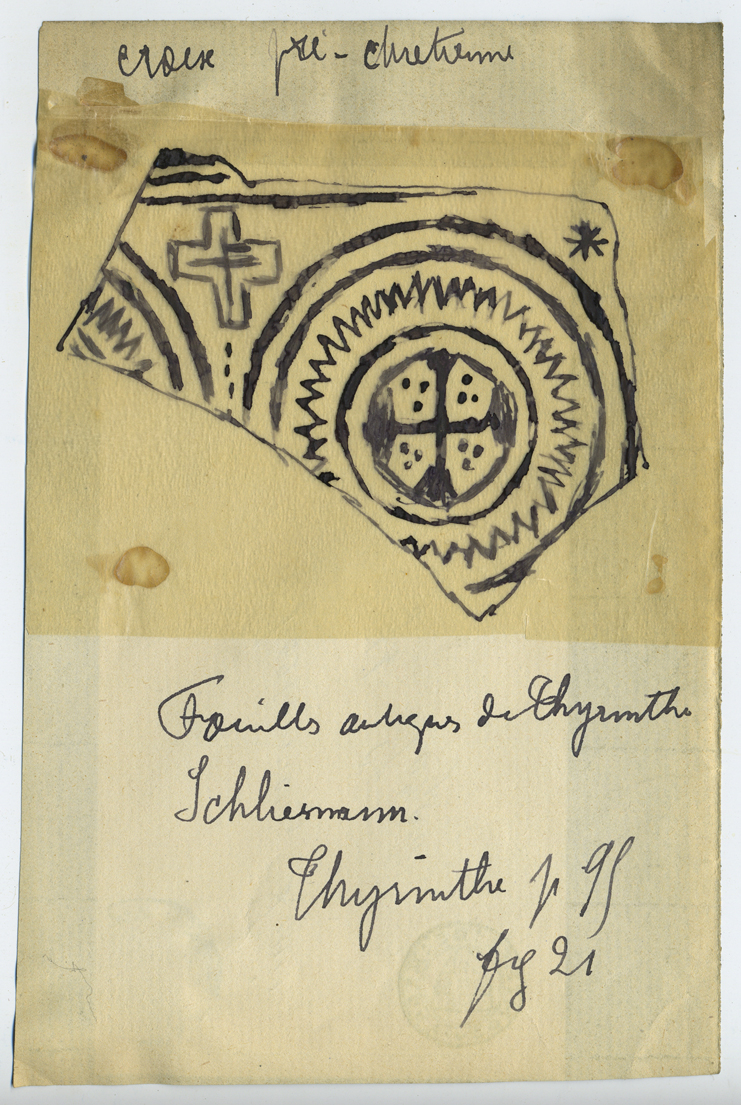 croix pré-chretienne
Fouilles antiques de Thyrinthe
Schliemann.
Thyrinthe p 95
fig 21